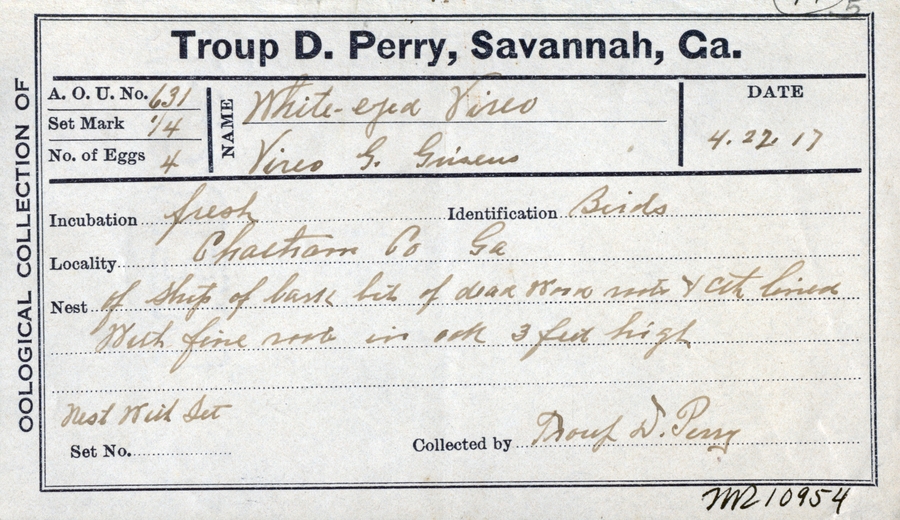 5
Troup D. Perry, Savannah, Ga.
OOLOGICAL COLLECTION OF
A. O. U. No. 631
Set Mark 1/4
No. of Eggs 4
NAME White-eyed Vireo
Vireo G. Griseus
DATE
4.22.17
Incubation fresh Identification Birds
Locality Chatham Co Ga
Nest of strips of bark bits of dead wood roots & lined
With fine roots in oak 3 feet high
Nest With Set
Set No.
Collected by Troup D. Perry
10954